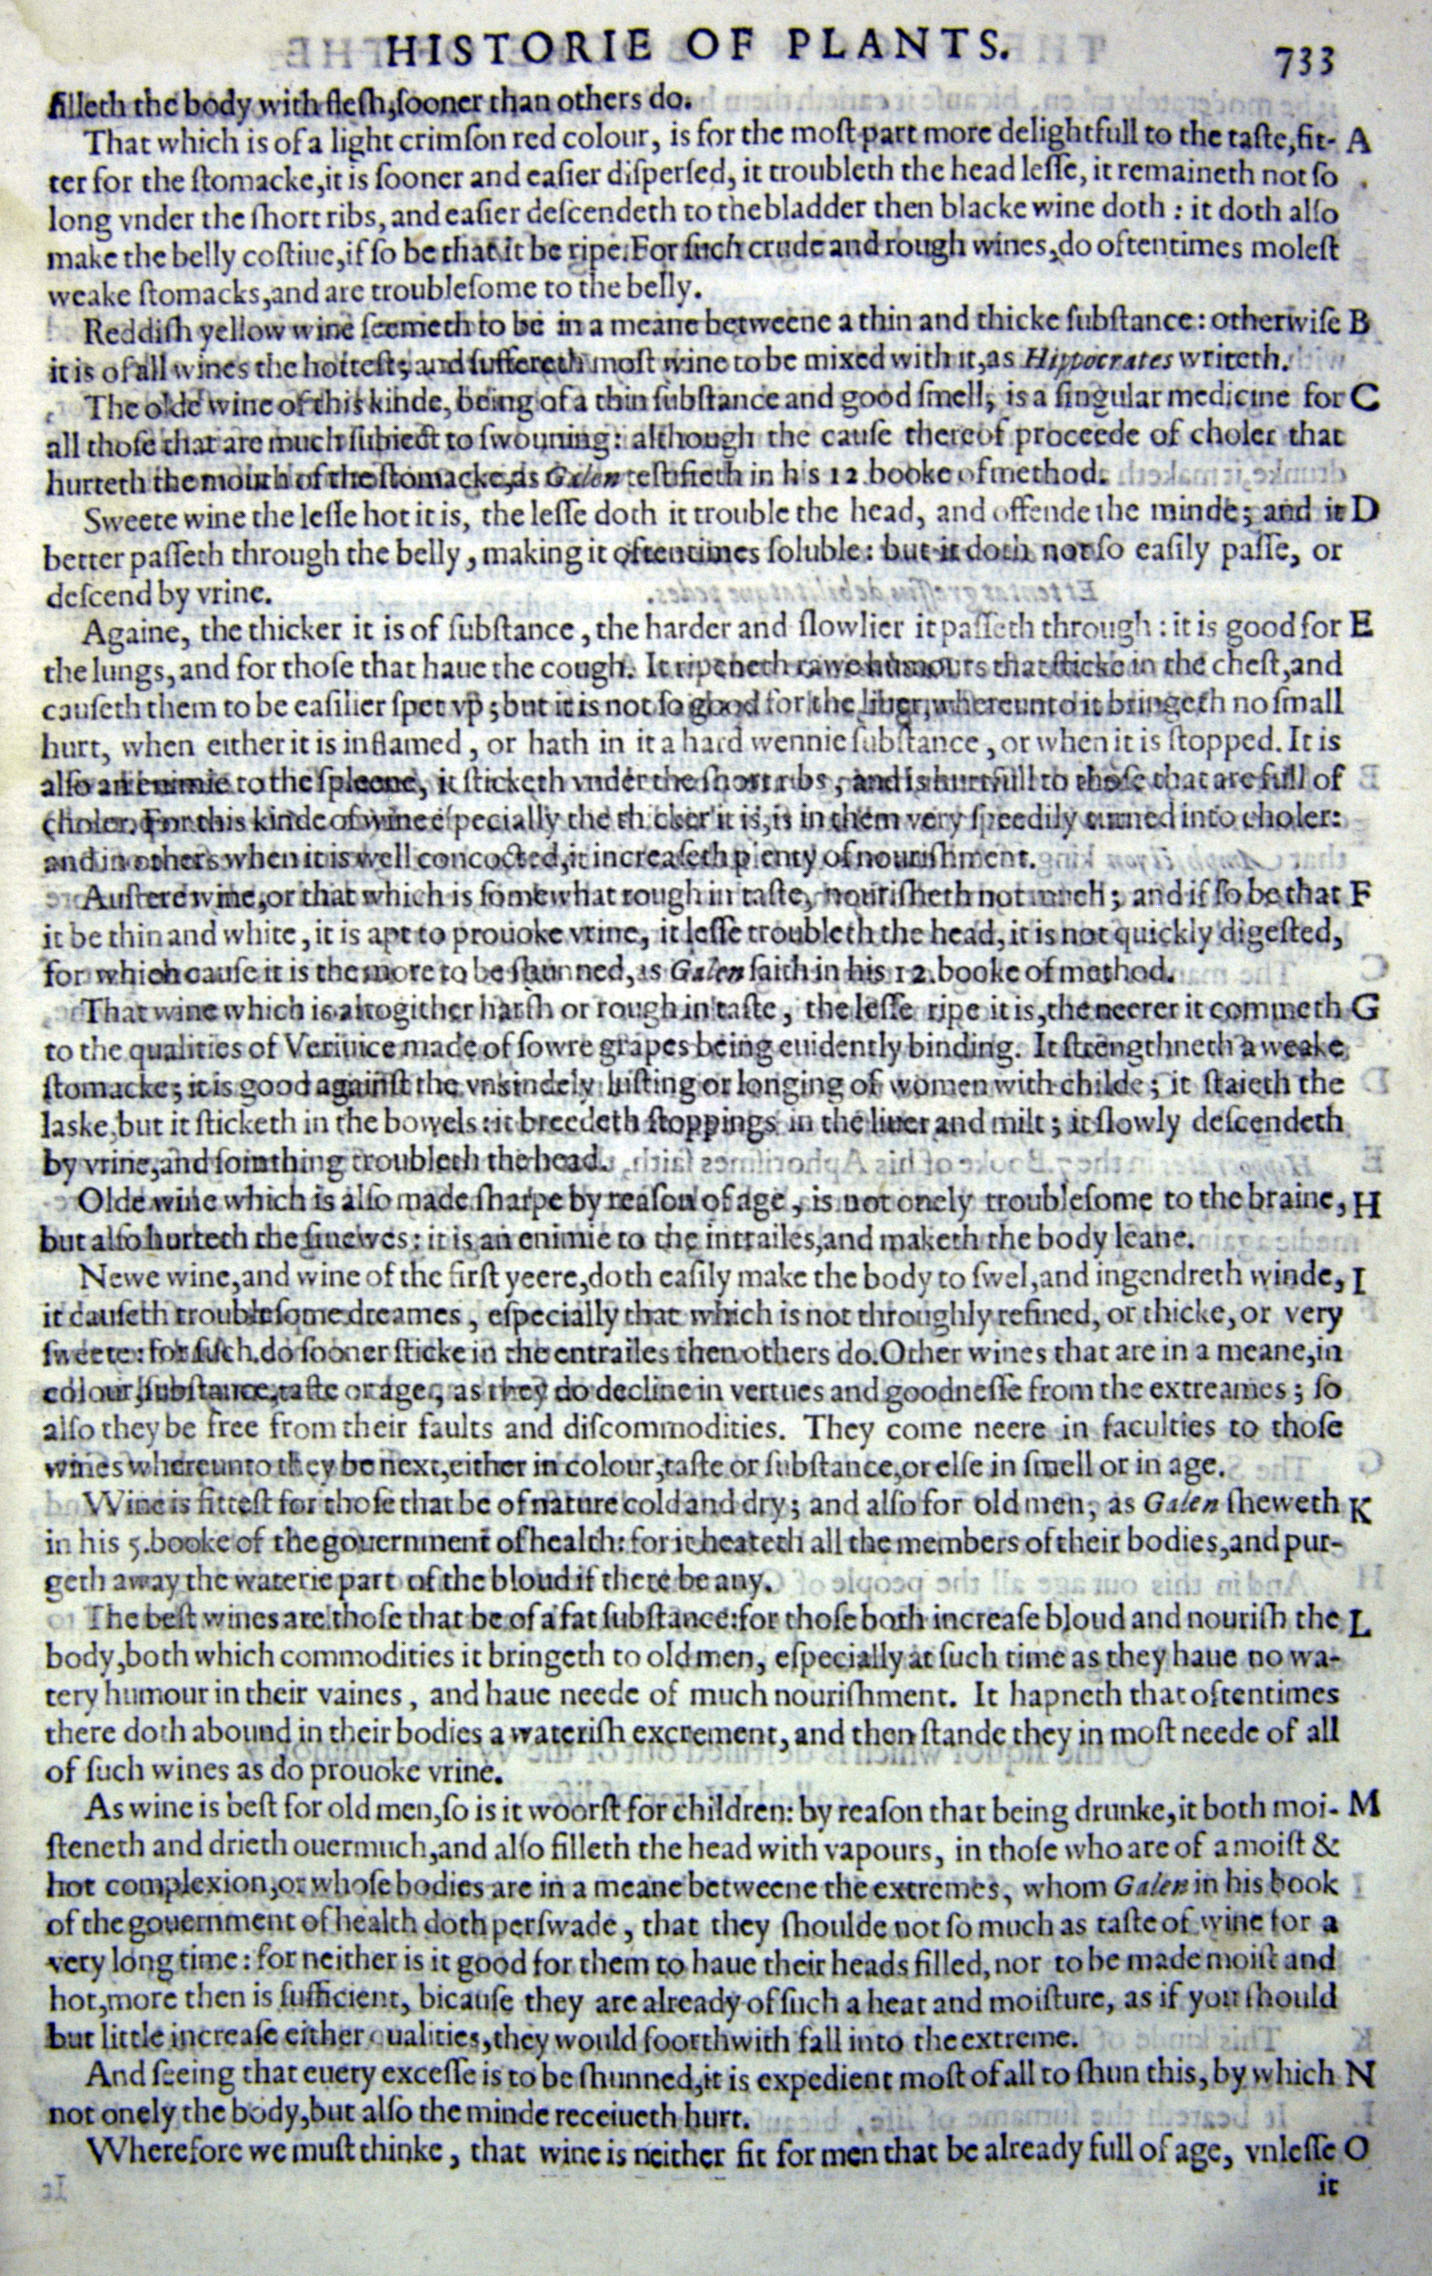 HISTORIE OF PLANTS. 733
filleth the body with flesh, sooner than others do.
That which is of a light crimson red colour, is for the most part more delightfull to the taste, fit- A
ter for the stomacke, it is sooner and easier dispersed, it troubleth the head lesse, it remaineth not so
long vnder the short ribs, and easier descendeth to the bladder then blacke wine doth: it doth also
make the belly costiue, if so be that it be ripe. For such crude and rough wines, do oftentimes molest
weake stomacks, and are troublesome to the belly.
Reddish yellow wine seemeth to be in a meane betweene a thin and thicke substance: otherwise B
it is of all wines the hottest; and suffereth most wine to be mixed with it, as Hippocrates writeth.
The olde wine of this kinde, being of a thin substance and good smell, is a singular medicine for C
all those that are much subiect to swouning: although the cause thereof proceede of choler that
hurteth the mouth of the stomacke, as Galen testifieth in his 12. booke of method.
Sweete wine the lesse hot it is, the lesse doth it trouble the head, and offende the minde; and it D
better passeth through the belly, making it oftentimes soluble: but it doth not so easily passe, or
descend by vrine.
Againe, the thicker it is of substance, the harder and slowlier it passeth through: it is good for E
the lungs, and for those that haue the cough. It ripeneth rawe humours that sticke in the chest, and
causeth them to be easilier spet vp; but it is not so good for the liuer, whereunto it bringeth no small
hurt, when either it is inflamed, or hath in it a hard wennie substance, or when it is stopped. It is
also an enimie to the spleene, it sticketh vnder the short ribs, and is hurtfull to those that are full of
choler. For this kinde of wine especially the thicker it is, is in them very speedily turned into choler:
and in others when it is well concocted, it increaseth plenty of nourishment.
Austere wine, or that which is somewhat rough in taste, nourisheth not much; and if so be that F
it be thin and white, it is apt to prouoke vrine, it lesse troubleth the head, it is not quickly digested,
for which cause it is the more to be shunned, as Galen saith in his 12. booke of method.
That wine which is altogither harsh or rough in taste, the lesse ripe it is, the neerer it commeth G
to the qualities of Veriuice made of sowre grapes being euidently binding. It strengthneth a weake
stomacke; it is good against the vnkindely lusting or longing of women with childe; it staieth the
laske, but it sticketh in the bowels: it breedeth stoppings in the liuer and milt; it slowly descendeth
by vrine, and somthing troubleth the head.
Olde wine which is also made sharpe by reason of age, is not onely troublesome to the braine, H
but also hurteth the sinewes: it is an enimie to the intrailes, and maketh the body leane.
Newe wine, and wine of the first yeere, doth easily make the body to swel, and ingendreth winde, I
it causeth troublesome dreames, especially that which is not throughly refined, or thicke, or very
sweete: for such do sooner sticke in the entrailes then others do. Other wines that are in a meane, in
colour, substance, taste or age, as they do decline in vertues and goodnesse from the extreames; so
also they be free from their faults and discommodities. They come neere in faculties to those
wines whereunto they be next, either in colour, taste or substance, or else in smell or in age.
Wine is fittest for those that be of nature cold and dry; and also for old men, as Galen sheweth K
in his 5. booke of the gouernment of health: for it heateth all the members of their bodies, and pur-
geth away the waterie part of the bloud if there be any.
The best wines are those that be of a fat substance: for those both increase bloud and nourish the L
body, both which commodities it bringeth to old men, especially at such time as they haue no wa-
tery humour in their vaines, and haue neede of much nourishment. It hapneth that oftentimes
there doth abound in their bodies a waterish excrement, and then stande they in most neede of all
of such wines as do prouoke vrine.
As wine is best for old men, so is it woorst for children: by reason that being drunke, it both moi- M
steneth and drieth ouermuch, and also filleth the head with vapours, in those who are of a moist &
hot complexion, or whose bodies are in a meane betweene the extremes, whom Galen in his book
of the gouernment of health doth perswade, that they shoulde not so much as taste of wine for a
very long time: for neither is it good for them to haue their heads filled, nor to be made moist and
hot, more then is sufficient, bicause they are already of such a heat and moisture, as if you should
but little increase either qualities, they would foorthwith fall into the extreme.
And seeing that euery excesse is to be shunned, it is expedient most of all to shun this, by which N
not onely the body, but also the minde receiueth hurt.
Wherefore we must thinke, that wine is neither fit for men that be already full of age, vnlesse O
it